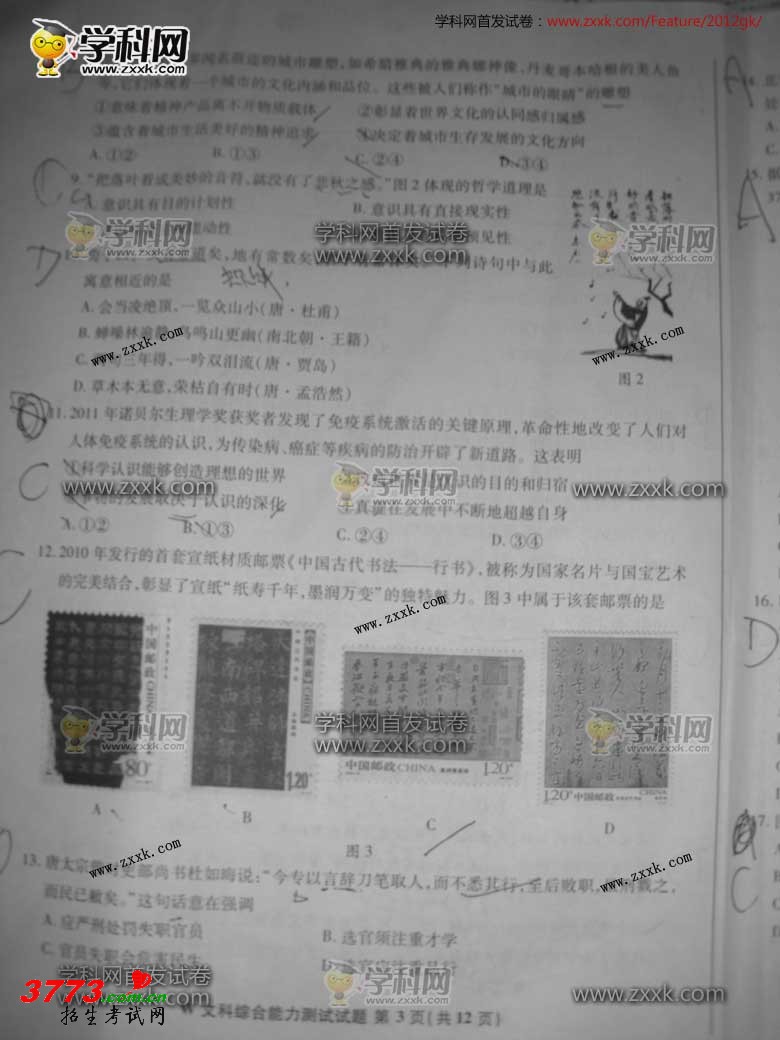 学科网首发试卷：www.zxxk.com/Feature/2012gk/
的城市雕塑，如希腊雅典的雅典娜神像，丹麦哥本哈根的美人鱼
等，它们体现着一个城市的文化内涵和品位。这些被人们称作“城市的眼睛”的雕塑
①意味着精神产品离不开物质载体 ②彰显着世界文化的认同感归属感
③蕴含着城市生活美好的精神追求 ④决定着城市生存发展的文化方向
A.①② B.①③ C.②④ D.③④
9.“把落叶看成美妙的音符，就没有了悲秋之感。”图2体现的哲学道理是
A.意识具有目的计划性 B.意识具有直接现实性
能动性 预见性
道矣，地有常数矣 诗句中与此
寓意相近的是
A.会当凌绝顶，一览众山小(唐·杜甫)
B.蝉噪林逾静，鸟鸣山更幽(南北朝·王籍)
C. 三年得，一吟双泪流(唐·贾岛)
D.草木本无意，荣枯自有时(唐·孟浩然)
图2
11.2011年诺贝尔生理学奖获奖者发现了免疫系统激活的关键原理，革命性地改变了人们对
人体免疫系统的认识，为传染病、癌症等疾病的防治开辟了新道路。这表明
①科学认识能够创造理想的世界 识的目的和归宿
发展取决于认识的深化 ④真理在发展中不断地超越自身
A.①② B.①③ C.②④ D.③④
12.2010年发行的首套宣纸材质邮票《中国古代书法——行书》，被称为国家名片与国宝艺术
的完美结合，彰显了宣纸“纸寿千年，墨润万变”的独特魅力。图3中属于该套邮票的是
中国邮政 CHINA 80
中国邮政 CHINA 1.20
中国邮政 CHINA 1.20
1.20 中国邮政 CHINA
A B C D
图3
13.唐太宗 吏部尚书杜如晦说：“今专以言辞刀笔取人，而不悉其行，至后败职，虽刑戮之，
而民已敝矣。”这句话意在强调
A.应严刑处罚失职官员 B.选官须注重才学
C.官员失职会危害民生 D.选官应注重品行
文科综合能力测试试题 第3页(共12页)
学科网 zxxk.com
学科网首发试卷
www.zxxk.com
3773.com.cn
招生考试网
15.
16.
17.